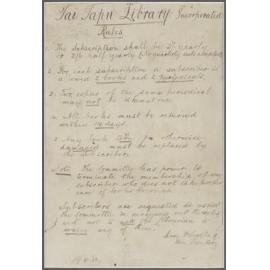 Tai Tapu Library Incorporated
Rules
1. The Subscription shall be 5/- yearly
or 2/6 half yearly
2. For each subscription a subscriber is
2 books and 2 periodicals.
3. Two copies of the same periodical
may not be taken
4. All books must be returned
within 14 days
5. Any book lost or otherwise
damaged must be replaced by
the subscriber.
Note The Committee has power to
terminate the membership of any
subscriber who does not take proper
care of books borrowed.
Subscribers are requested to assist
the Committee in
and not to ask the librarian to
waive any of them.
Hon Secretary